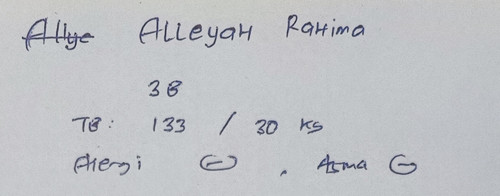 Allye ALLEYAH RAHIMA
3B
TB: 133 / 30 KG
Alergi ⊖ , Asma ⊖